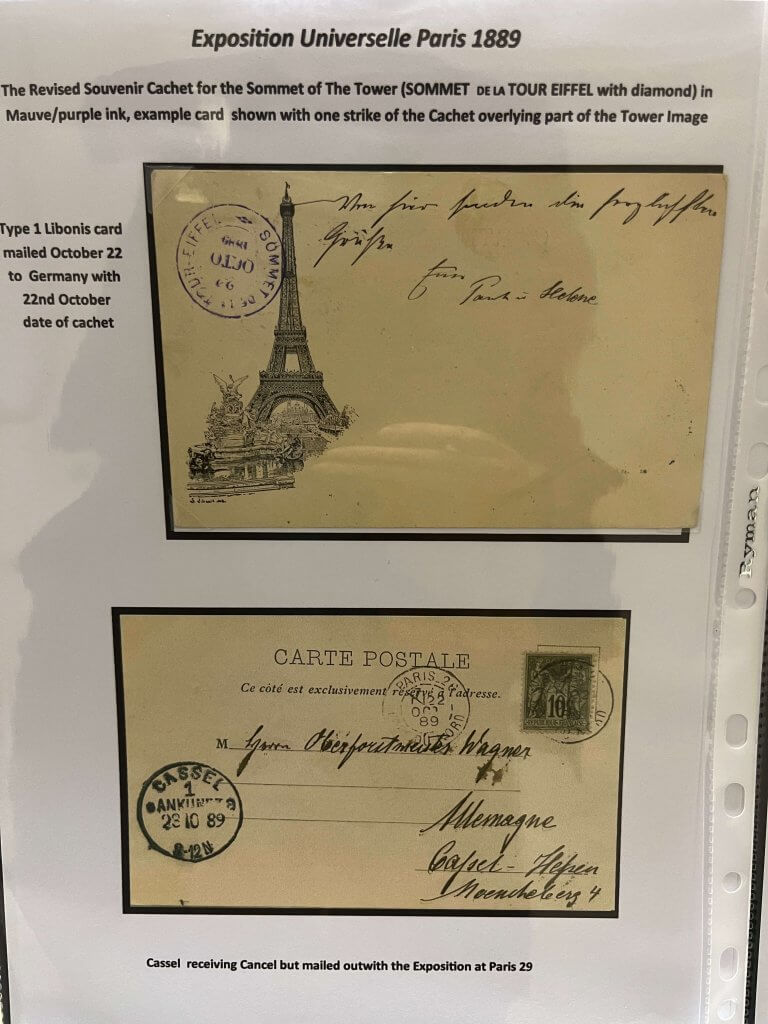 Exposition Universelle Paris 1889
The Revised Souvenir Cachet for the Sommet of The Tower (SOMMET DE LA TOUR EIFFEL with diamond) in
Mauve/purple ink, example card shown with one strike of the Cachet overlying part of the Tower Image
Type 1 Libonis card
mailed October 22
to Germany with
22nd October
date of cachet
SOMMET DE LA TOUR-EIFFEL
OCTO
Von hier senden die herzlichsten
Grüße
Eure
u Helene
CARTE POSTALE
Ce côté est exclusivement réservé à l'adresse.
PARIS
22
OCT
89
10
M Herrn Oberforstmeister Wagner
CASSEL
1
ANKUNFT
23 10 89
8-12N
Allemagne
Cassel - Hessen
Moencheberg 4
Cassel receiving Cancel but mailed outwith the Exposition at Paris 29
Ryman